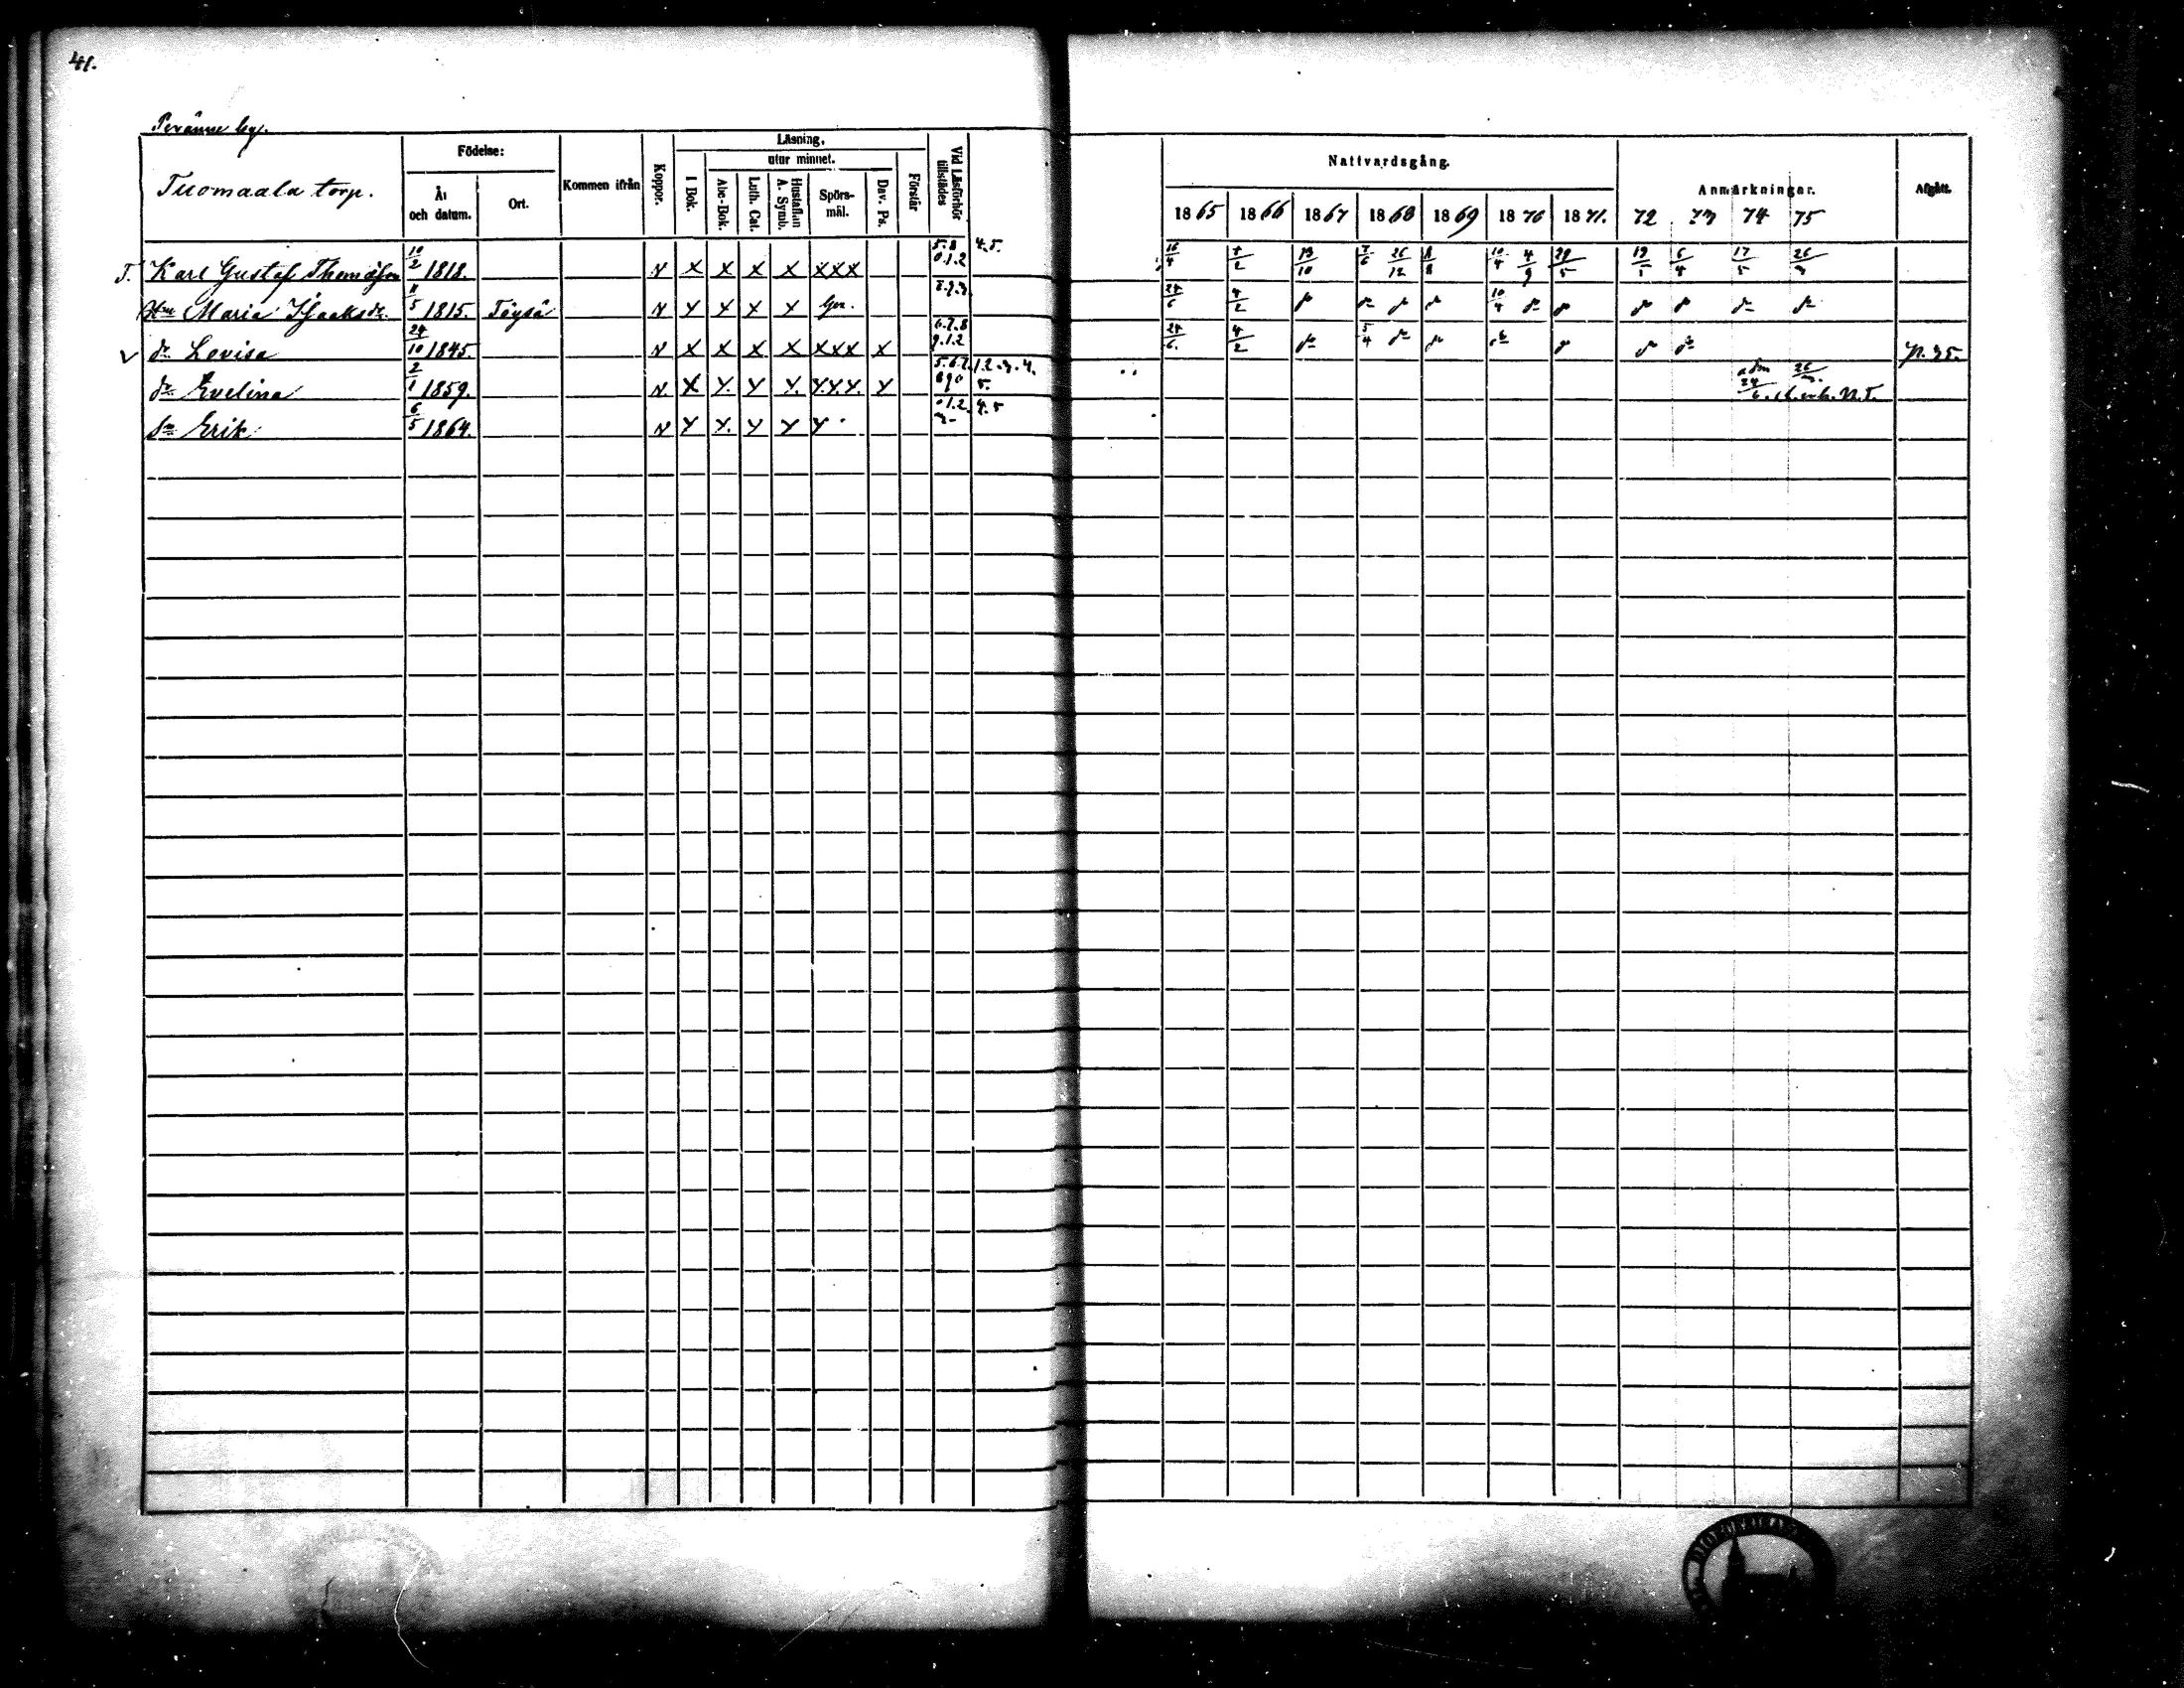 41.
Peränne by.
Tuomaala torp.
Födelse:
År och datum.
Ort.
Kommen ifrån
Koppor.
Läsning,
I Bok.
utur minnet.
Abc-Bok.
Luth. Cat.
Hustaflan A. Symb.
Spörs-mål.
Dav. Ps.
Förstår
Vid Läsförhör tillstädes
Nattvardsgång.
1865 1866 1867 1868 1869 1870 1871.
Anmärkningar.
72 73 74 75
Afgått.
T. Karl Gustaf Thomasson 10/2 1818. N X X X X XXX 5.8 0.1.2 4.5. 16/4 4/2 13/10 7/6 26/12 8/8 10/4 4/9 29/5 19/5 6/4 17/5 26/3
Hu Maria Isaaksdr 11/5 1815. Töysä N Y Y X X 24/6 4/2 10/4
v dr Lovisa 24/10 1845. N X X X X XXX X 6.7.8 9.1.2 24/6. 4/2 5/4 p. 35.
dr Evelina 2/1 1859. N. X Y. Y Y. Y.Y.Y. Y 5.6.7. 890 1.2.3.4. 5. adm 24/6. 26/3
sn Erik 6/5 1864. N Y Y. Y Y Y 0.1.2. 3- 4.5